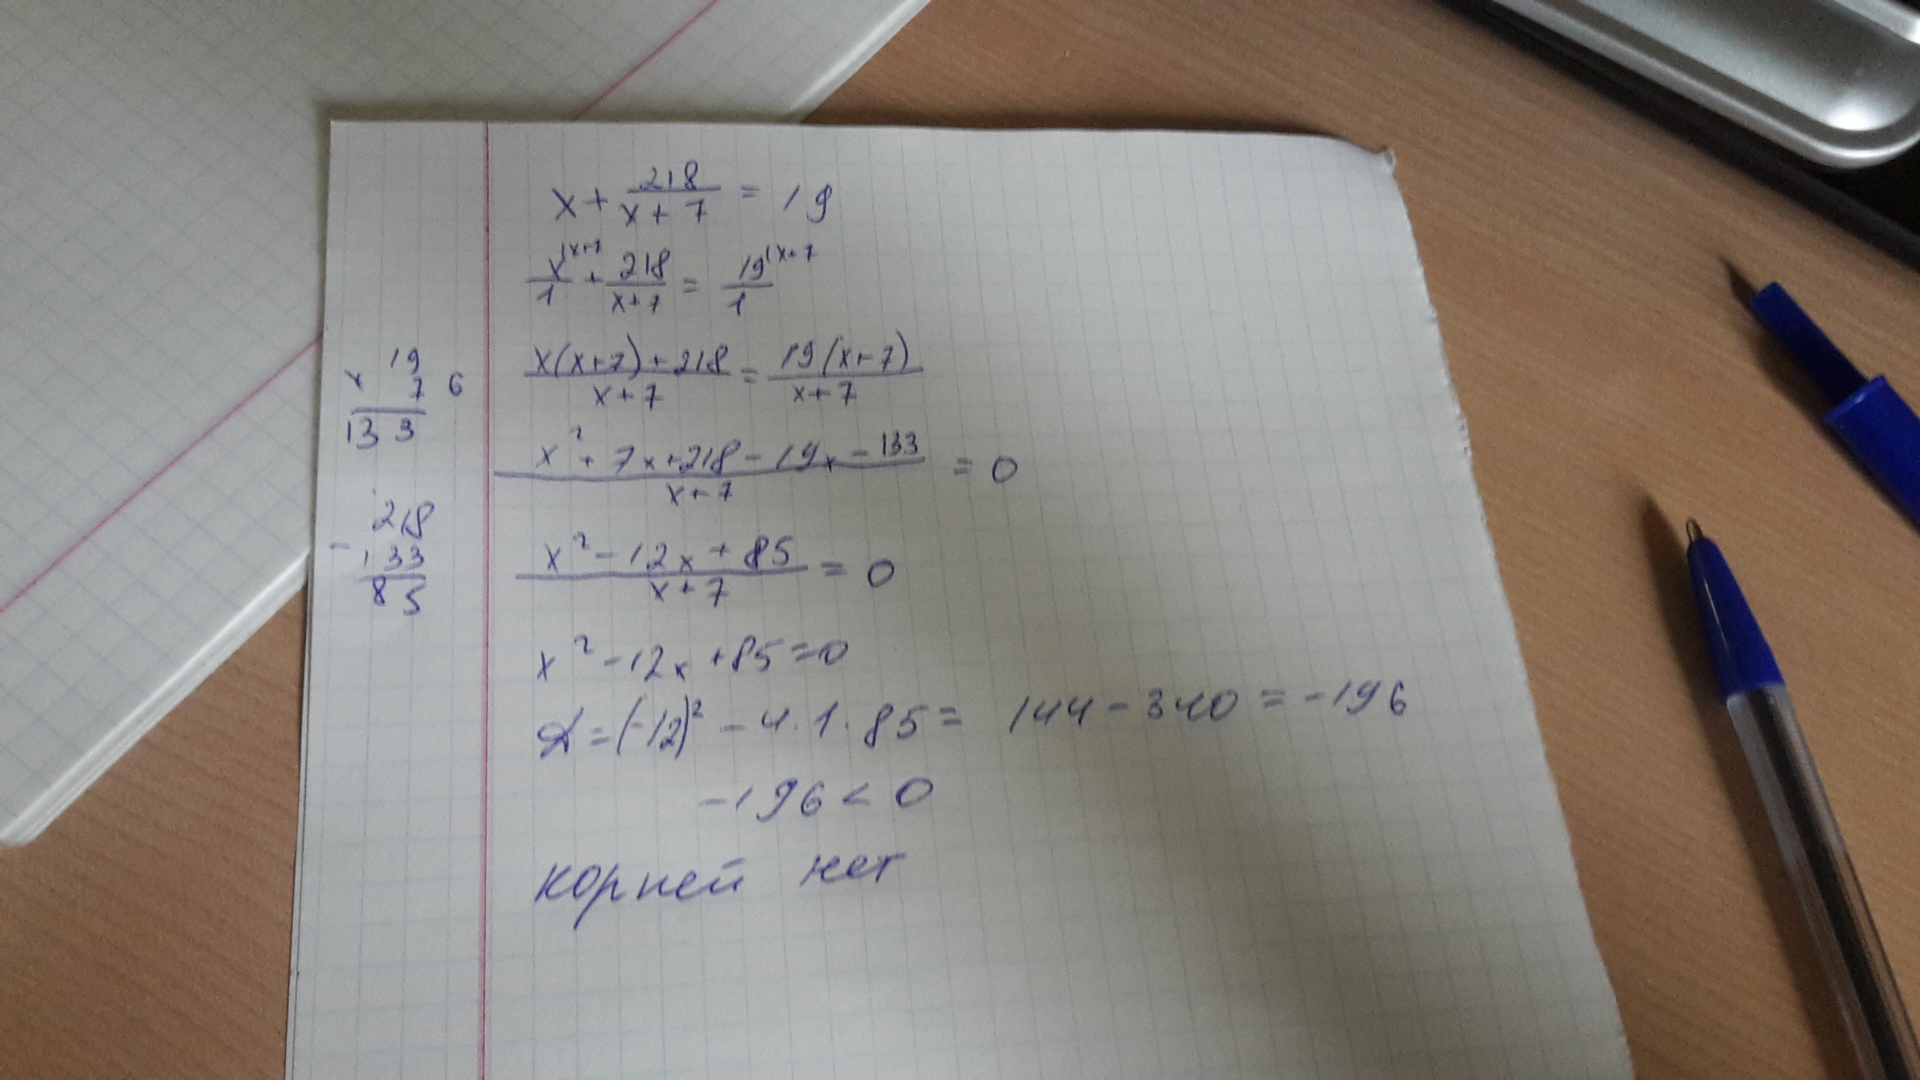 x + 218/(x + 7) = 19
x/1 |x+7 + 218/(x+7) = 19/1 |x+7
(x(x+7)+218)/(x+7) = (19(x+7))/(x+7)
(x² + 7x + 218 - 19x - 133)/(x+7) = 0
(x² - 12x + 85)/(x+7) = 0
x² - 12x + 85 = 0
D = (-12)² - 4·1·85 = 144 - 340 = -196
-196 < 0
корней нет
19
× 7 6
133
218
- 133
85